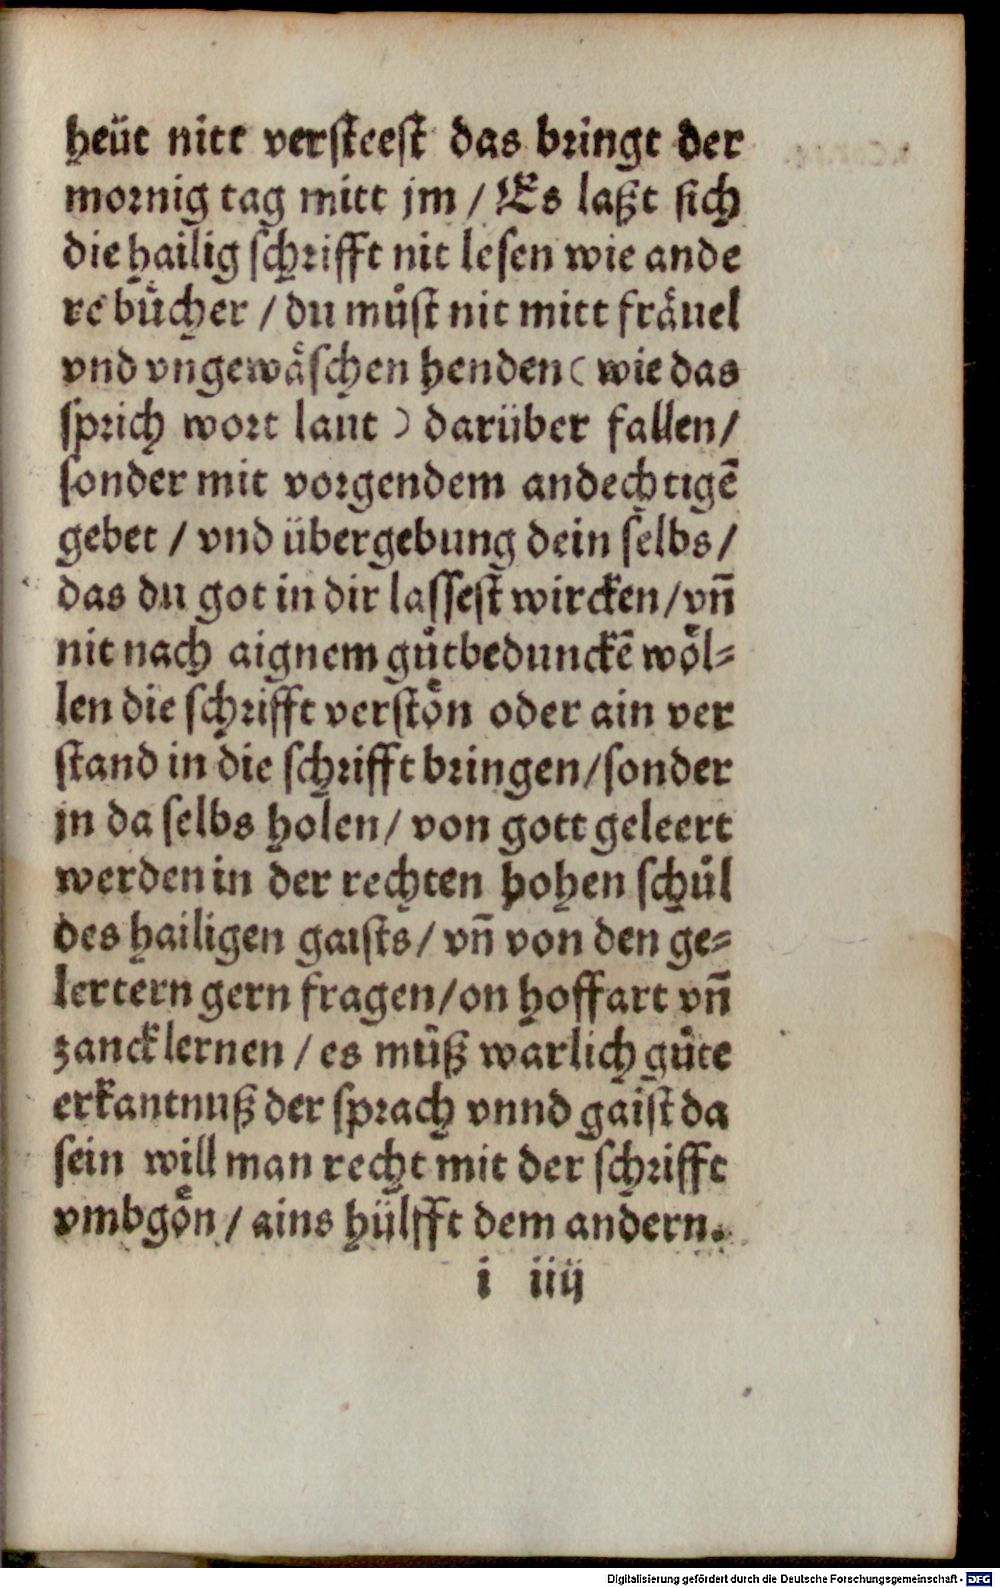 heüt nitt versteest das bringt der
mornig tag mitt jm / Es laßt sich
die hailig schrifft nit lesen wie ande
re bücher / du můst nit mitt fräuel
vnd vngewäschen henden ( wie das
sprich wort laut ) darüber fallen /
sonder mit vorgendem andechtigē
gebet / vnd übergebung dein selbs /
das du got in dir lassest wircken / vn̄
nit nach aignem gůtbedunckē wöl⸗
len die schrifft verstön oder ain ver
stand in die schrifft bringen / sonder
jn da selbs holen / von gott geleert
werden in der rechten hohen schůl
des hailigen gaists / vn̄ von den ge⸗
lertern gern fragen / on hoffart vn̄
zanck lernen / es můß warlich gůte
erkantnuß der sprach vnnd gaist da
sein will man recht mit der schrifft
vmbgön / ains hülfft dem andern.
i iiij
Digitalisierung gefördert durch die Deutsche Forschungsgemeinschaft - DFG